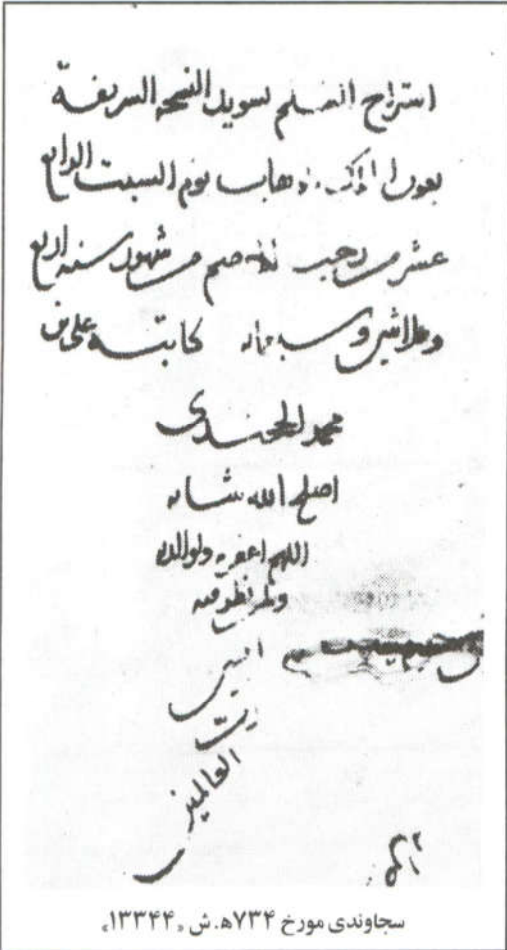 استراح القلم تسويد النسخة الشريفة
بعون يوم السبت الرابع
عشر من رجب من شهور سنه اربع
و ثلاثين و سبعمائه كاتبه علی بن
محمد الخجندی
اصلح الله شانه
اللهم اغفر له ولوالديه
ولمن نظر فيه
امين
رب
العالمين
سجاوندی مورخ ۷۳۴ه‍.ش «۱۳۳۴۴»